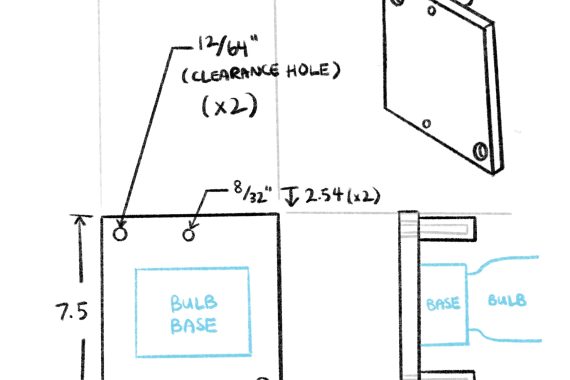 12/64"
(CLEARANCE HOLE)
(x2)
8/32" ↧ 2.54 (x2)
7.5
BULB
BASE
BASE
BULB